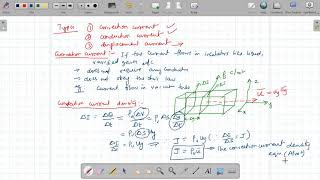 Types ① convection current ✓
② conduction current ✓
③ displacement current →
Convection current :- If the current flows in insulators like liquid,
rarified gases etc.
→ does not require any conductor
→ does not obey the ohm's law
Eg: Current flows in vacuum tube
Convection current density :-
ΔI = ΔQ/Δt = ρv ΔV/Δt = ρv ΔS Δy/Δt
= ρv (ΔS) uy
ΔI/ΔS = ρv uy
J = ρv uy (∵ ΔI/ΔS = J)
J = ρv u → the convection current density
eqn (A/m²)